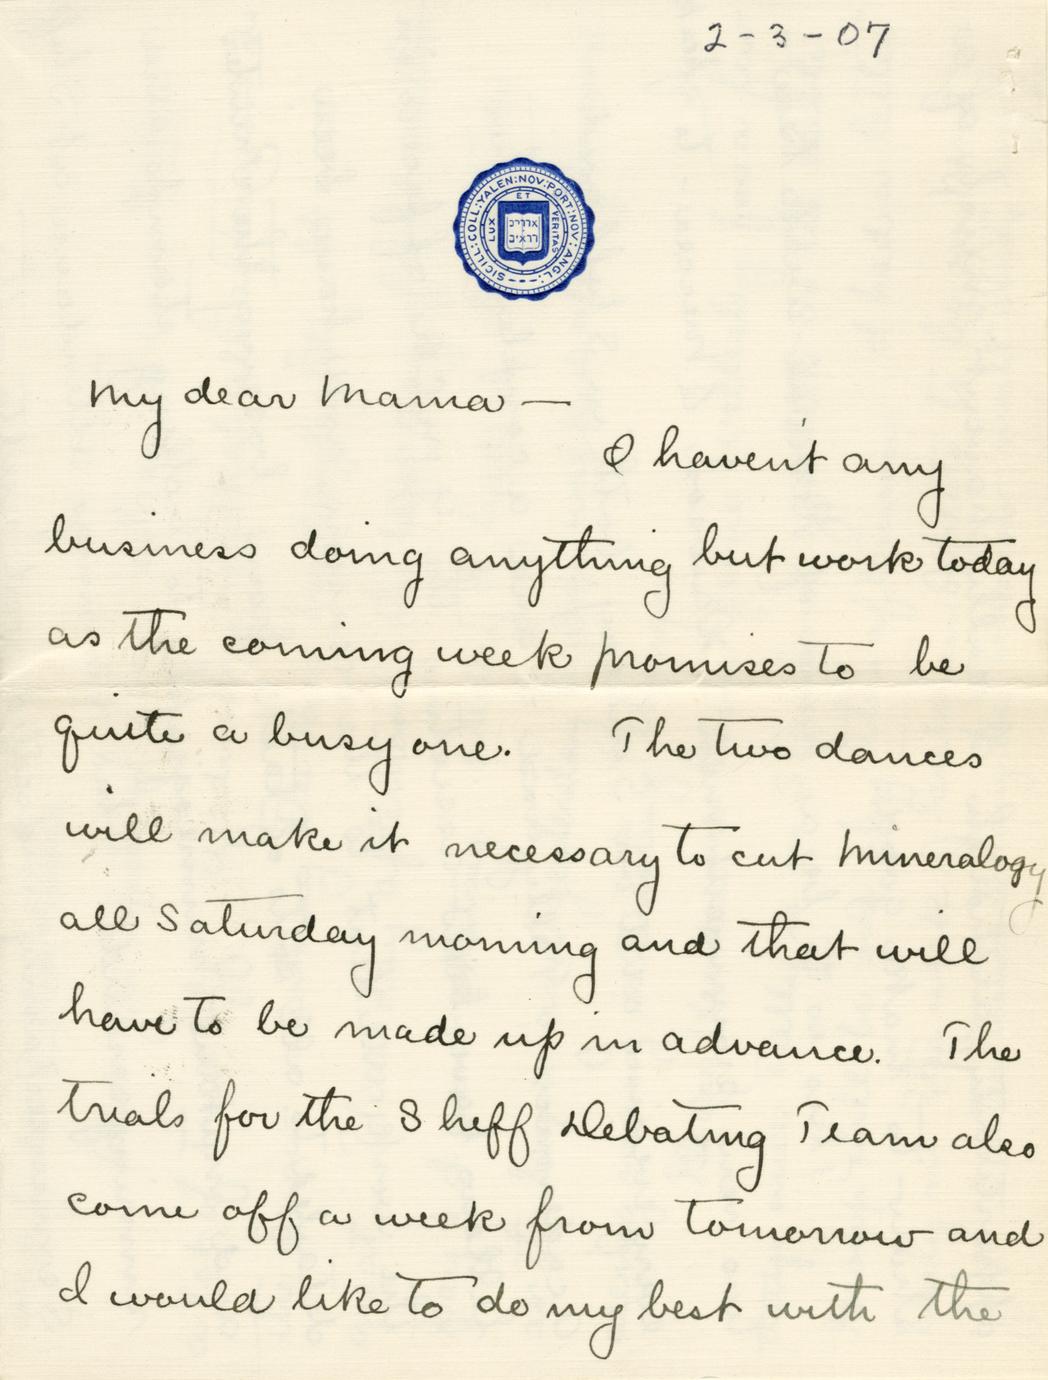 2-3-07
SIGILL: COLL: YALEN: NOV: PORT: NOV: ANGL:
LUX ET VERITAS
My dear Mama —
I haven't any
business doing anything but work today
as the coming week promises to be
quite a busy one. The two dances
will make it necessary to cut Mineralogy
all Saturday morning and that will
have to be made up in advance. The
trials for the Sheff Debating Team also
come off a week from tomorrow and
I would like to do my best with the